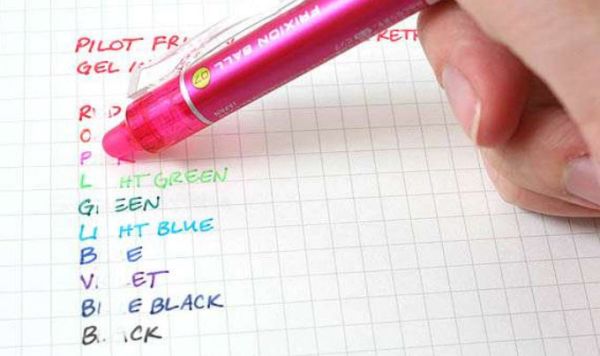 PILOT FR RETR
GEL IN
R D
O
P
L HT GREEN
G EEN
LI HT BLUE
B E
V. ET
BL E BLACK
B. CK
FRIXION BALL
07